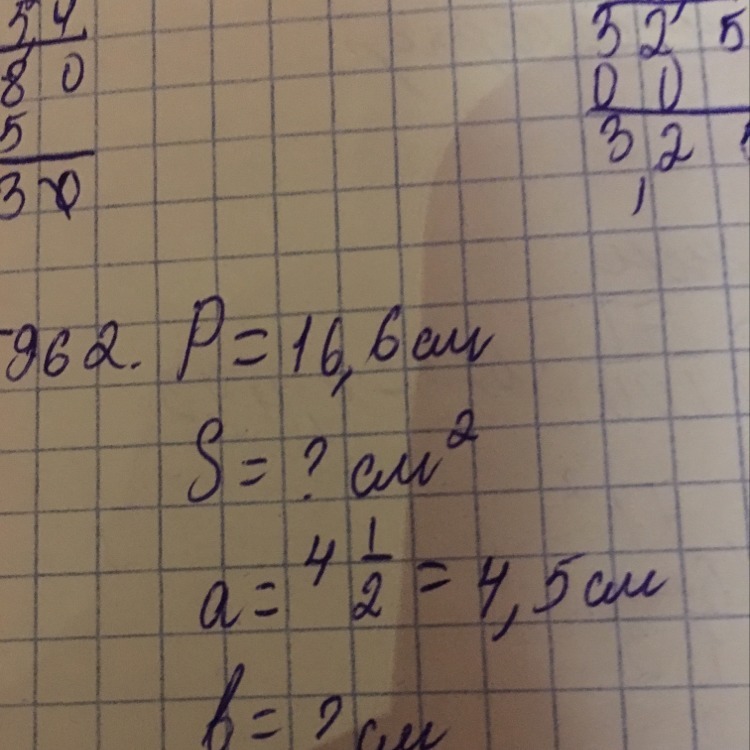 5 4
8 0
5
3 0
3 2 5
0 0
3 2
,
962. P = 16,6 см
S = ? см²
a = 4 1/2 = 4,5 см
b = ? см